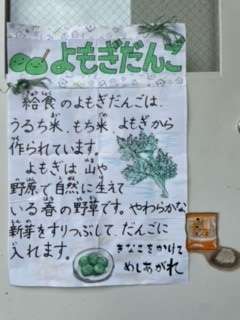 よもぎだんご
給食のよもぎだんごは、
うるち米、もち米、よもぎから
作られています。
よもぎは山や
野原で自然に生えて
いる春の野草です。やわらかな
新芽をすりつぶして、だんごに
入れます。
きなこをかけて
めしあがれ